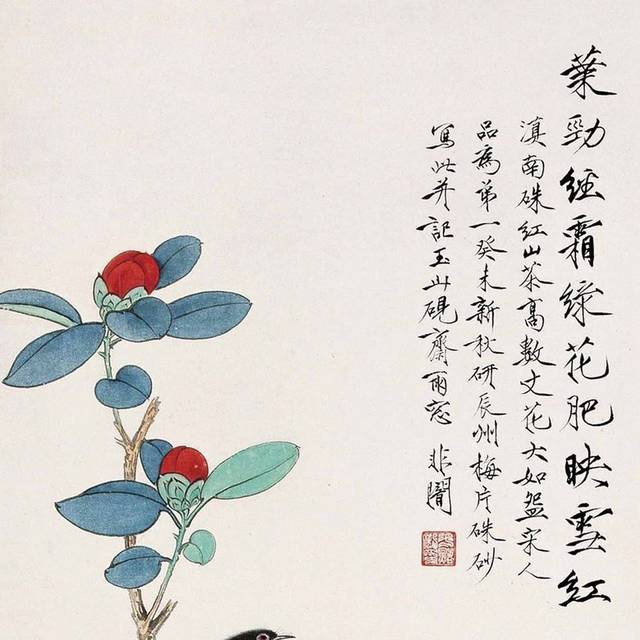 葉勁經霜綠花肥映雪紅
滇南硃紅山茶高數丈花大如盌宋人
品爲第一癸未新秋研辰州梅片硃砂
寫此并記玉山硯齋雨窓 非闇